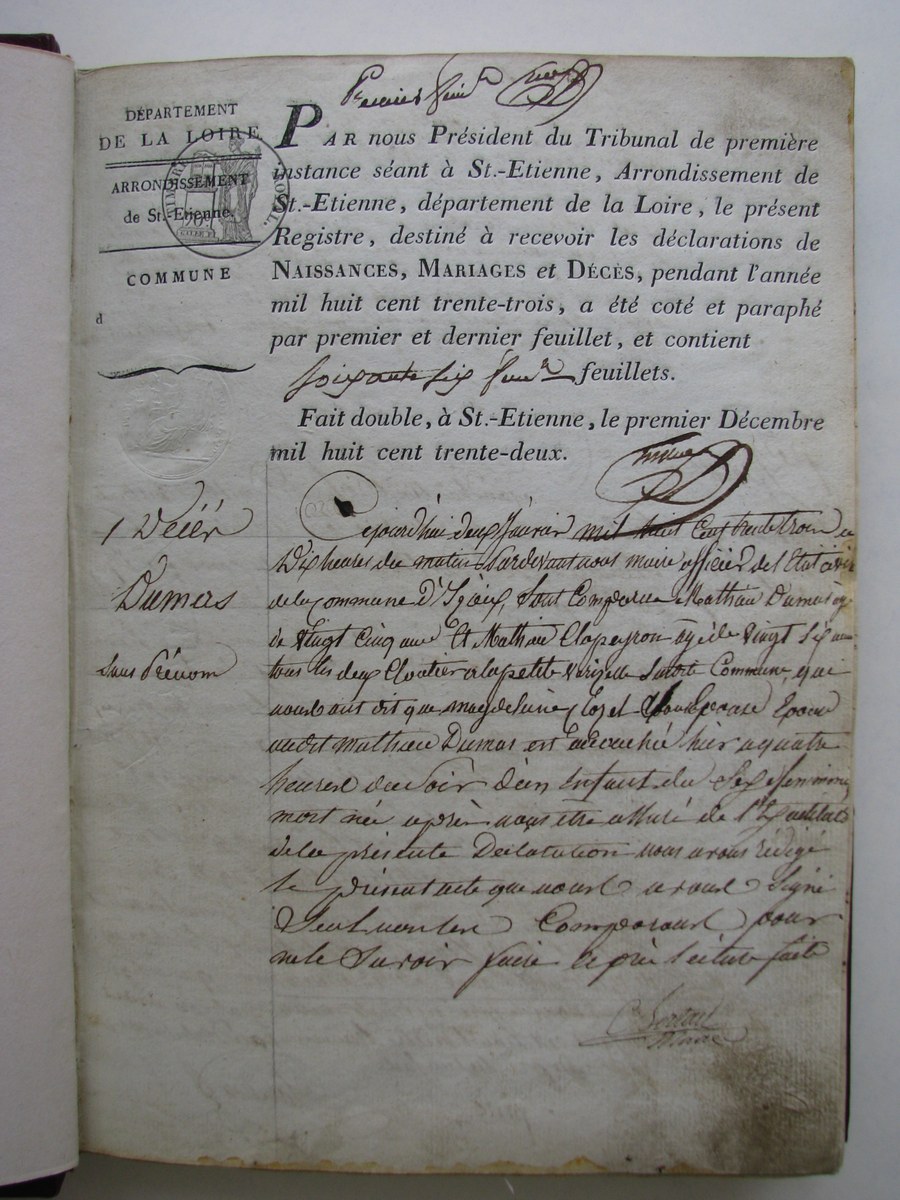 Premier feuillet
DÉPARTEMENT
DE LA LOIRE
ARRONDISSEMENT
de St.-Etienne.
COMMUNE
d
PAR nous Président du Tribunal de première
instance séant à St.-Etienne, Arrondissement de
St.-Etienne, département de la Loire, le présent
Registre, destiné à recevoir les déclarations de
NAISSANCES, MARIAGES et DÉCÈS, pendant l'année
mil huit cent trente-trois, a été coté et paraphé
par premier et dernier feuillet, et contient
soixante six feuillets.
Fait double, à St.-Etienne, le premier Décembre
mil huit cent trente-deux.
1 Décés
Dumas
Sans Prénom
Cejourd'hui deux Janvier mil huit Cent trente trois a
Dix heures du matin Pardevant nous maire officier de l'Etat civil
de la commune D' Sont Comparus Mathieu Dumas agé
de Vingt Cinq ans Et Mathieu Clapeyron agé de Vingt Six ans
tous les deux Cloutier a la petite Susdite Commune, qui
nous ont dit que magdelaine Epouse
audit mathieu Dumas est accouchée hier a quatre
heures du Soir d'un Enfant du Sexe femminin
mort née après nous être assuré de l'Exactitude
de la présente Déclaration nous avons rédigé
le présent acte que nous avons Signé
Seul non les Comparans pour
ne le Savoir faire après lecture faite
Maire